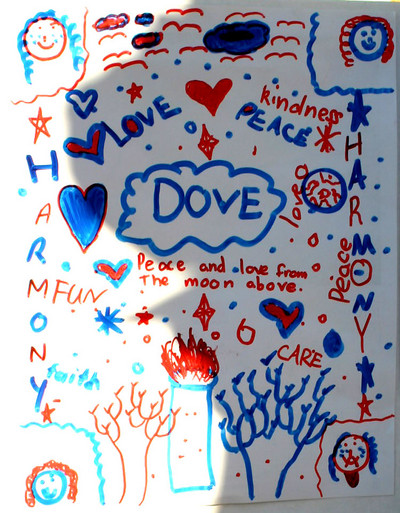 LOVE
kindness
PEACE
DOVE
love
Peace and love from
The moon above.
Peace
FUN
CARE
faith
HARMONY
HARMONY